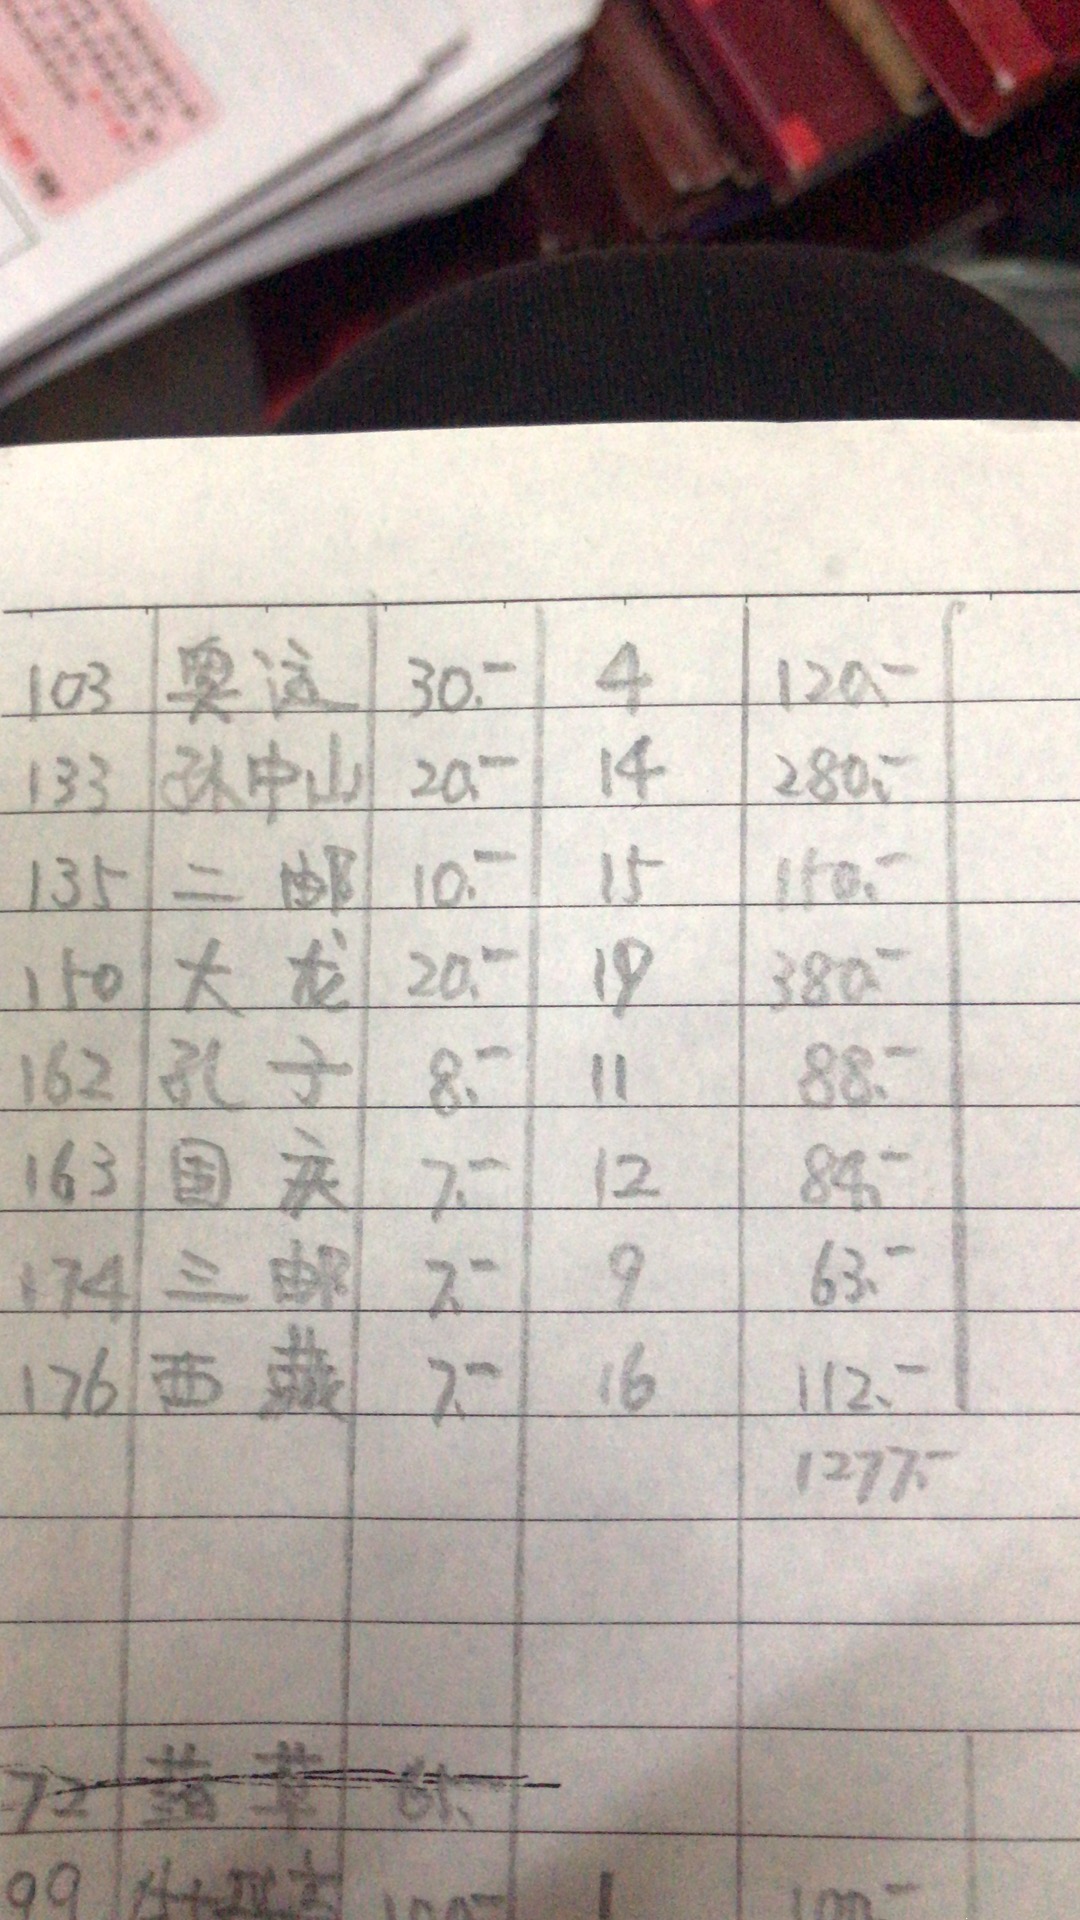 103 奥运 30.- 4 120.-
133 孙中山 20.- 14 280.-
135 二邮 10.- 15 150.-
150 大龙 20.- 19 380.-
162 孔子 8.- 11 88.-
163 国庆 7.- 12 84.-
174 三邮 7.- 9 63.-
176 西藏 7.- 16 112.-
1277.-
72
99 100.- 1 100.-